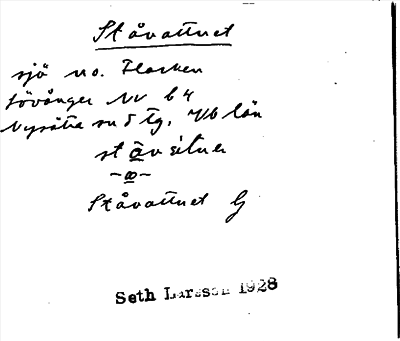 Ståvattnet
sjö no. Flarken
Lövånger NV b 4
Nysätra sn 8 tg. Vb län
Ståvattnet G
Seth Larsson 1928